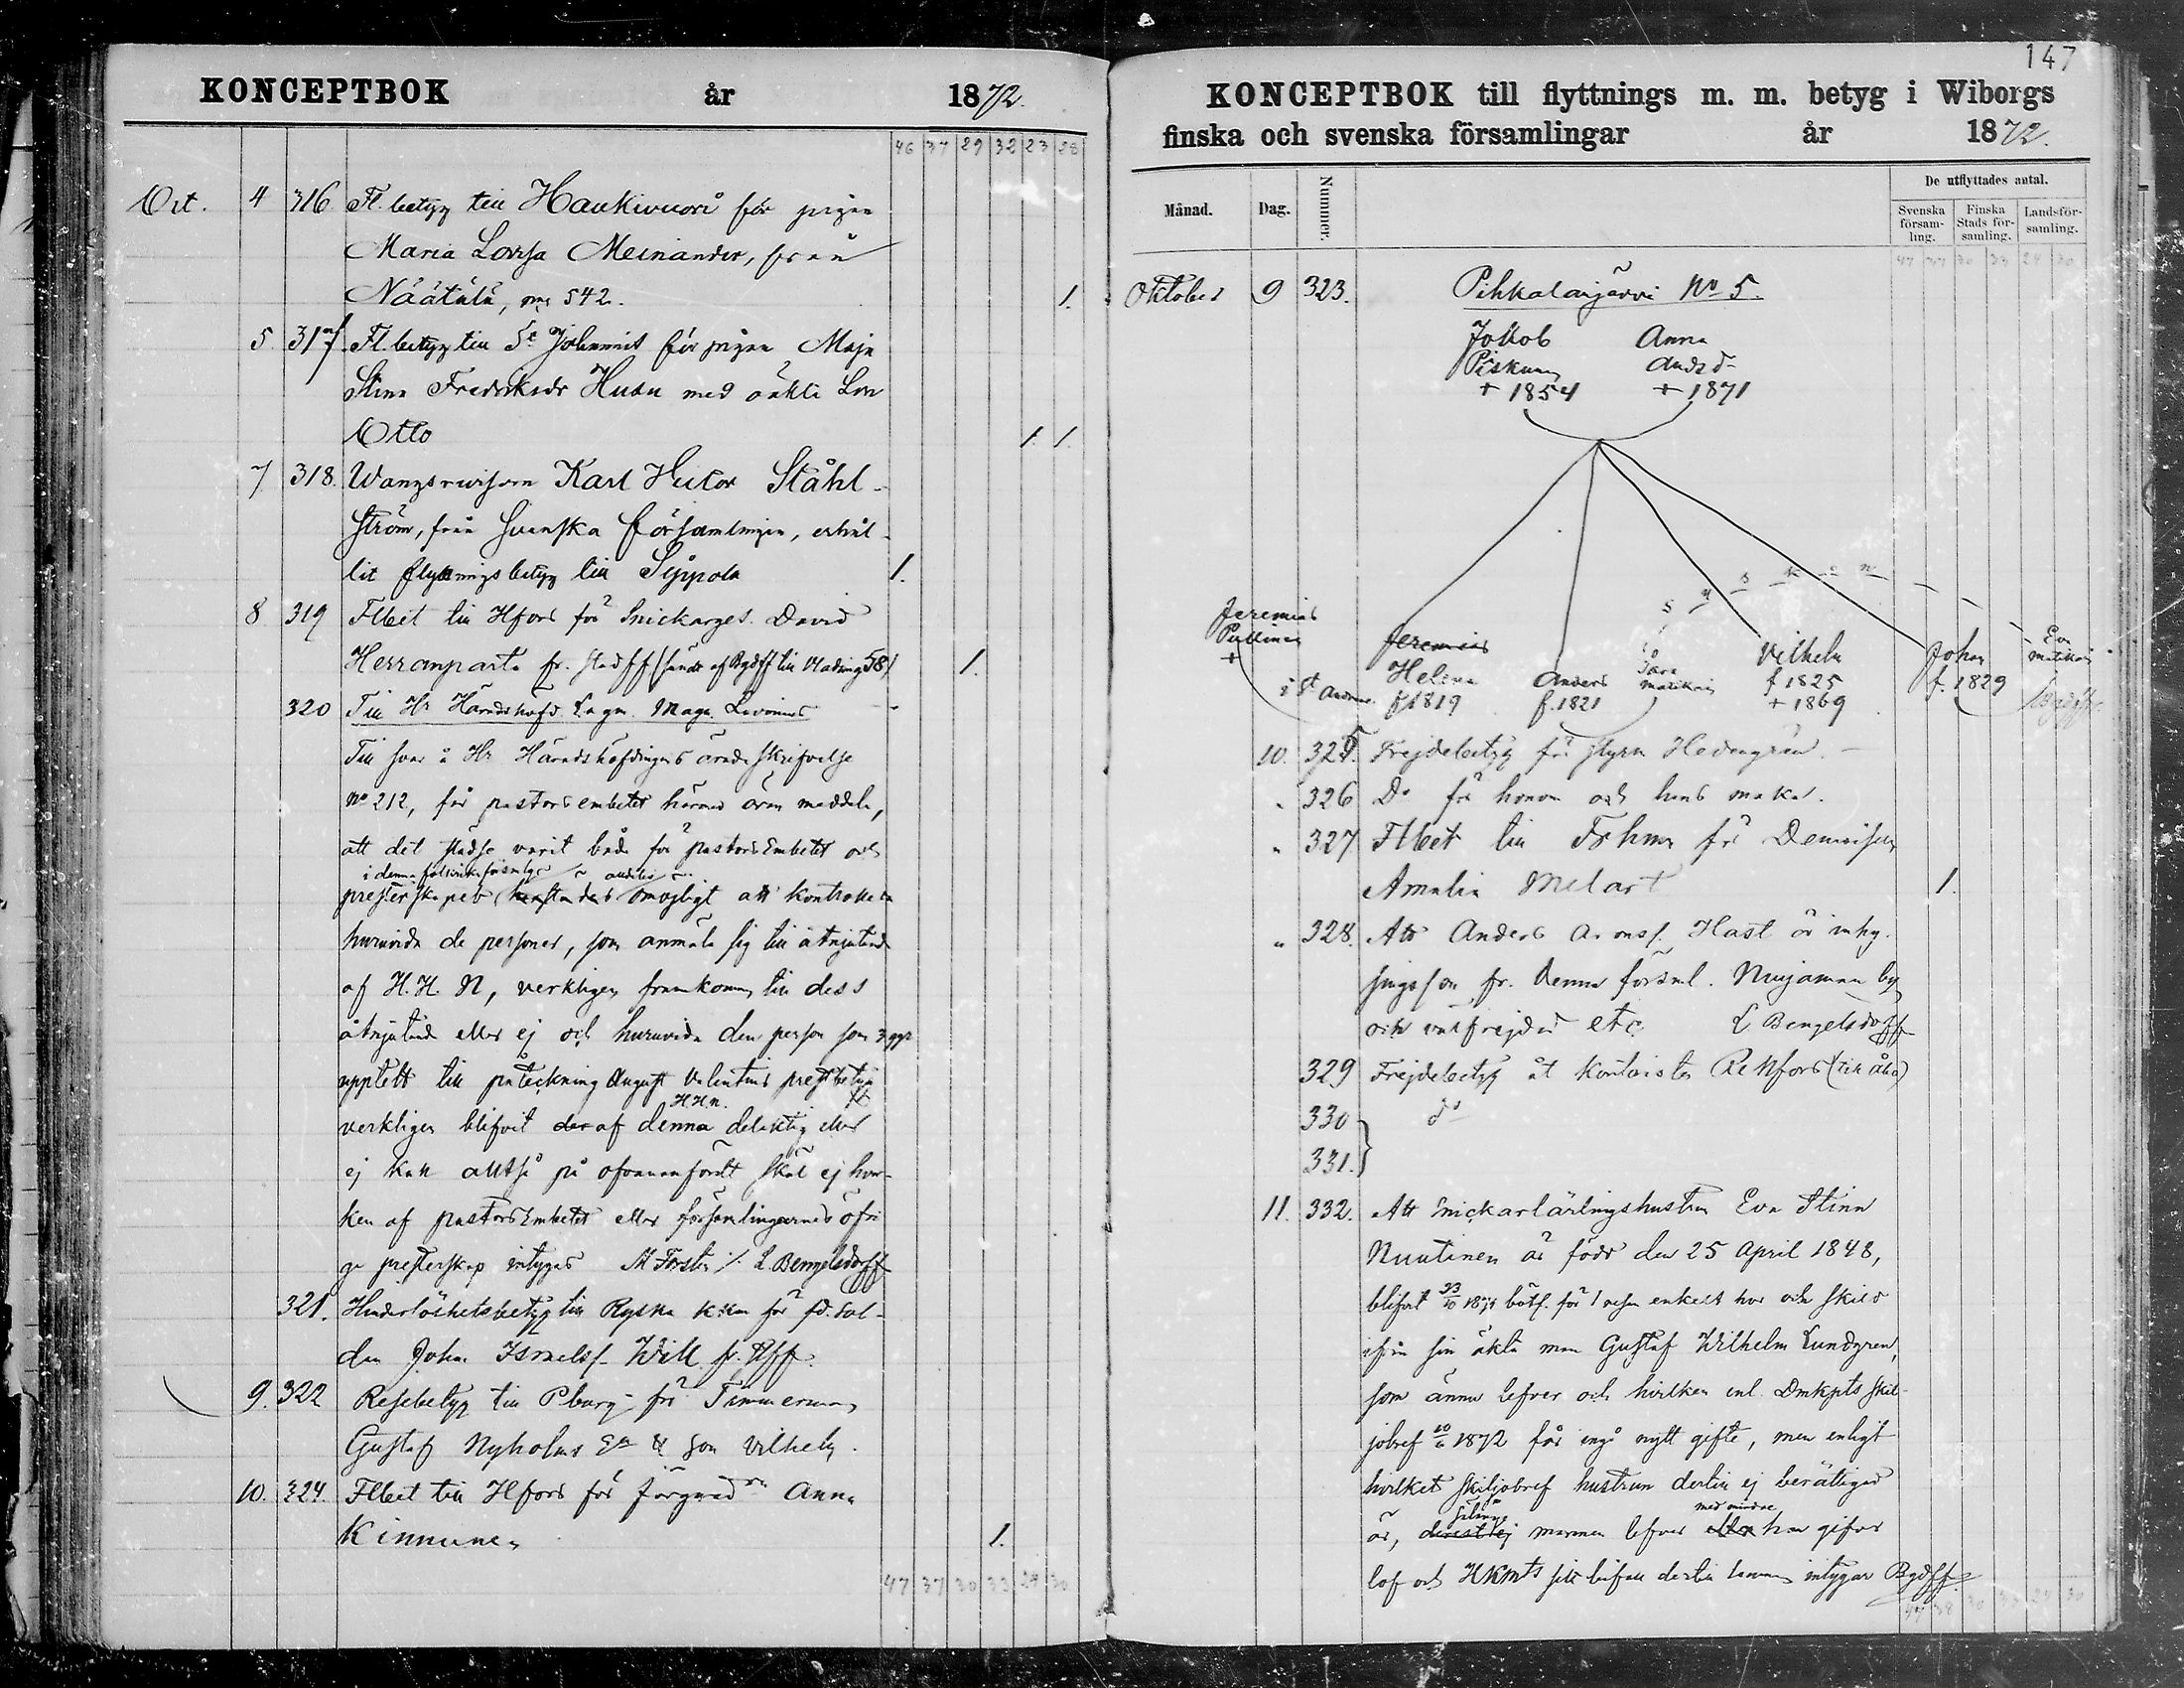 KONCEPTBOK år 1872.
46 37 29 32 23 28
Oct. 4 316 Fl. betyg till Haukivuori för pigan
Maria Lovisa Meinander, från
Näätälä, pag 542. 1.
5 317. Fl. betyg till St Johannis för pigan Maja
Stina Fredriksdr Husu med oäkta Son
Otto 1. 1.
7 318. Karl Hector Ståhl-
ström, från Svenska församlingen, erhål-
lit flyttningsbetyg till Sippola 1.
8 319 Flbet till Hfors för Snickarges. David
Herranparta fr. stadsff 1.
320 Till Hr Häradshöfd. Lagm. Magn. Livonius
Till svar å Hr Häradshöfdingens ärade skrifvelse
No 212, får pastorsembetet härmed äran meddela,
att det städse varit både för pastors Embetet och
i denna folkrika församlg alldeles
presterskapet omöjligt att kontrollera
huruvida de personer, som anmäla sig till åtnjutande
af H. H. N, verkligen framkomma till dess
åtnjutande eller ej och huruvida den person som 3 ggr
upptett till påteckning August Valentins prestbetyg
H.H.N.
verkligen blifvit af denna delaktig eller
ej kan alltså på ofvananfördt skäl ej hvar-
ken af pastors Embetet eller församlingarnes öfri-
ga presterskap intygas M Forstén /. L Bengelsdorff
321. Hinderlöshetsbetyg till Ryska k:kan för fd. Sol-
den Johan Israelsf. Will fr. Lfff.
9. 322 Resebetyg till Pburg för Timmerman
Gustaf Nyholms Ea & son Vilhelm.
10. 324. Flbet till Hfors för Anna
Kinnunen 1.
47 37 30 33 24 30
147
KONCEPTBOK till flyttnings m. m. betyg i Wiborgs
finska och svenska församlingar år 1872.
Månad. Dag. Nummer. De utflyttades antal.
Svenska församling. Finska Stads församling. Landsförsamling.
47 37 30 33 24 30
Oktober 9 323. Pihkalanjärvi No 5.
Jakob Anna
Piskunen Andsdr
+ 1854 + 1871
Jeremias
Pullinen
+
i St Andreæ.
Jeremias
Helena
f. 1819
Anders
f. 1821
Sara
Matikain
Vilhelm
f 1825
+ 1869
Johan
f. 1829
Eva
Matikain
10. 325. Frejdebetyg för styrm Hedengren. –
" 326 Do för honom och hans maka.
" 327 Flbet till Fshmn för Demoisellen
Amalia Melart 1.
" 328. Att Anders Aronsf. Hast är inhy-
singsson fr. denna försml. Nuijamaa by
och välfrejdad etc L Bengelsdorff
329 Frejdebetyg åt kontorister Renfors (till Åbo)
330 do
331.
11. 332. Att Snickarlärlingshustrun Eva Stina
Nuutinen är född den 25 April 1848,
blifvit 23/10 1871 bötf. för 1 resan enkelt hor och skild
ifrån sin äkta man Gustaf Wilhelm Lundgren,
som ännu lefver och hvilken enl. Dmkpts skil-
jobref 10/6 1872 får ingå nytt gifte, men enligt
hvilket skiljobref hustrun dertill ej berättigad
sålänge med mindre
är, mannen lefver eller han gifver
lof och HKMts sitt bifall dertill lemnar intygar Bgdff.
47 38 30 33 24 30